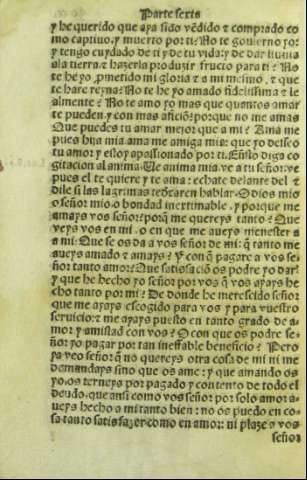 Parte sexta
y he querido que aya sido vēdido τ comprado co
mo captiuo, y muerto por ti? No te gouierno yo?
y tengo cuydado de ti y de tu vida: y de dar lluuia
ala tierra τ hazerla produzir fructo para ti? No
te he yo ꝓmetido mi gloria τ a mi mesmo, τ que
te hare reyna? No te he yo amado fidelissima τ le
almente? No te amo yo mas que quantos amar
te pueden, y con mas aficiō? porque no me amas
Que puedes tu amar mejor que a mi? Ama me
pues hija mia ama me amiga mia: que yo desseo
tu amor y estoy apassionado por ti. Esto diga co
gitacion al anima. Ue anima mia, ve a tu señor: ve
pues el te quiere y te ama: echate delante del τ
dile si las lagrimas te dexaren hablar. O dios mio
o señor mio, o bondad inestimable, y porque me
amays vos señor? porq̄ me quereys tanto? Que
veys vos en mi, o en que me aueys menester a
a mi? Que se os da a vos señor de mi: q̄ tanto me
aueys amado τ amays? Y con q̄ pagare a vos se
ñor tanto amor? Que satisfaciō os podre yo dar?
y que he hecho yo señor por vos q̄ vos ayays he
cho tanto por mi? De donde he merescido señor
que me ayays escogido para vos y para vuestro
seruicio: τ me ayays puesto en tanto grado de a-
mor y amistad con vos? O con que os podre se-
ñor yo pagar por tan ineffable beneficio? Pero
ya veo señor q̄ no quereys otra cosa de mi ni me
demandays sino que os ame: y que amando os
yo, os terneys por pagado y contento de todo el
deudo, que ansi como vos señor por solo amor a-
ueys hecho a mi tanto bien: no os puedo en co-
sa tanto satisfazer como en amor: ni plaze a vos
señor